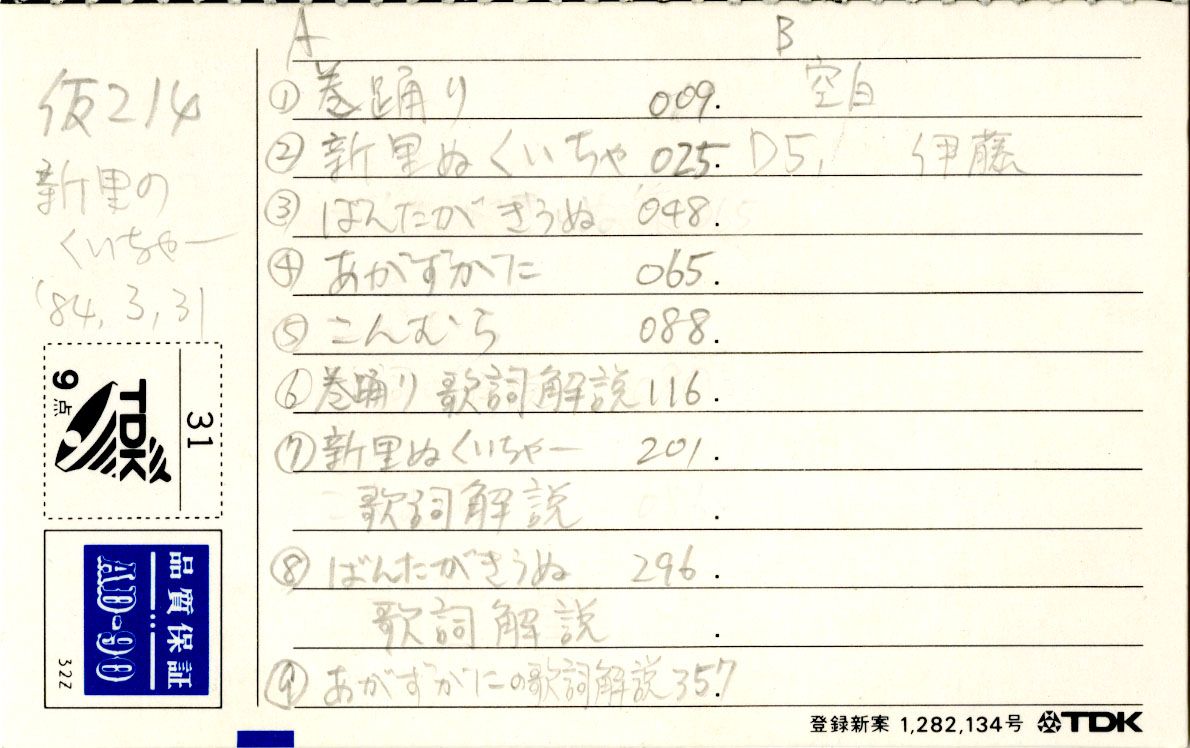 A B
仮214
新里の
くいちゃー
'84,3,31
① 巻踊り 009. 空白
② 新里ぬくいちゃ 025. D5, 伊藤
③ ばんたがきうぬ 048.
④ あがずがに 065.
⑤ こんむら 088.
⑥ 巻踊り 歌詞解説 116.
⑦ 新里ぬくいちゃー 201.
歌詞解説 .
⑧ ばんたがきうぬ 296.
歌詞解説 .
⑨ あがずがにの歌詞解説 357.
31
TDK
9点
品質保証
AD•90
32Z
登録新案 1,282,134号 TDK